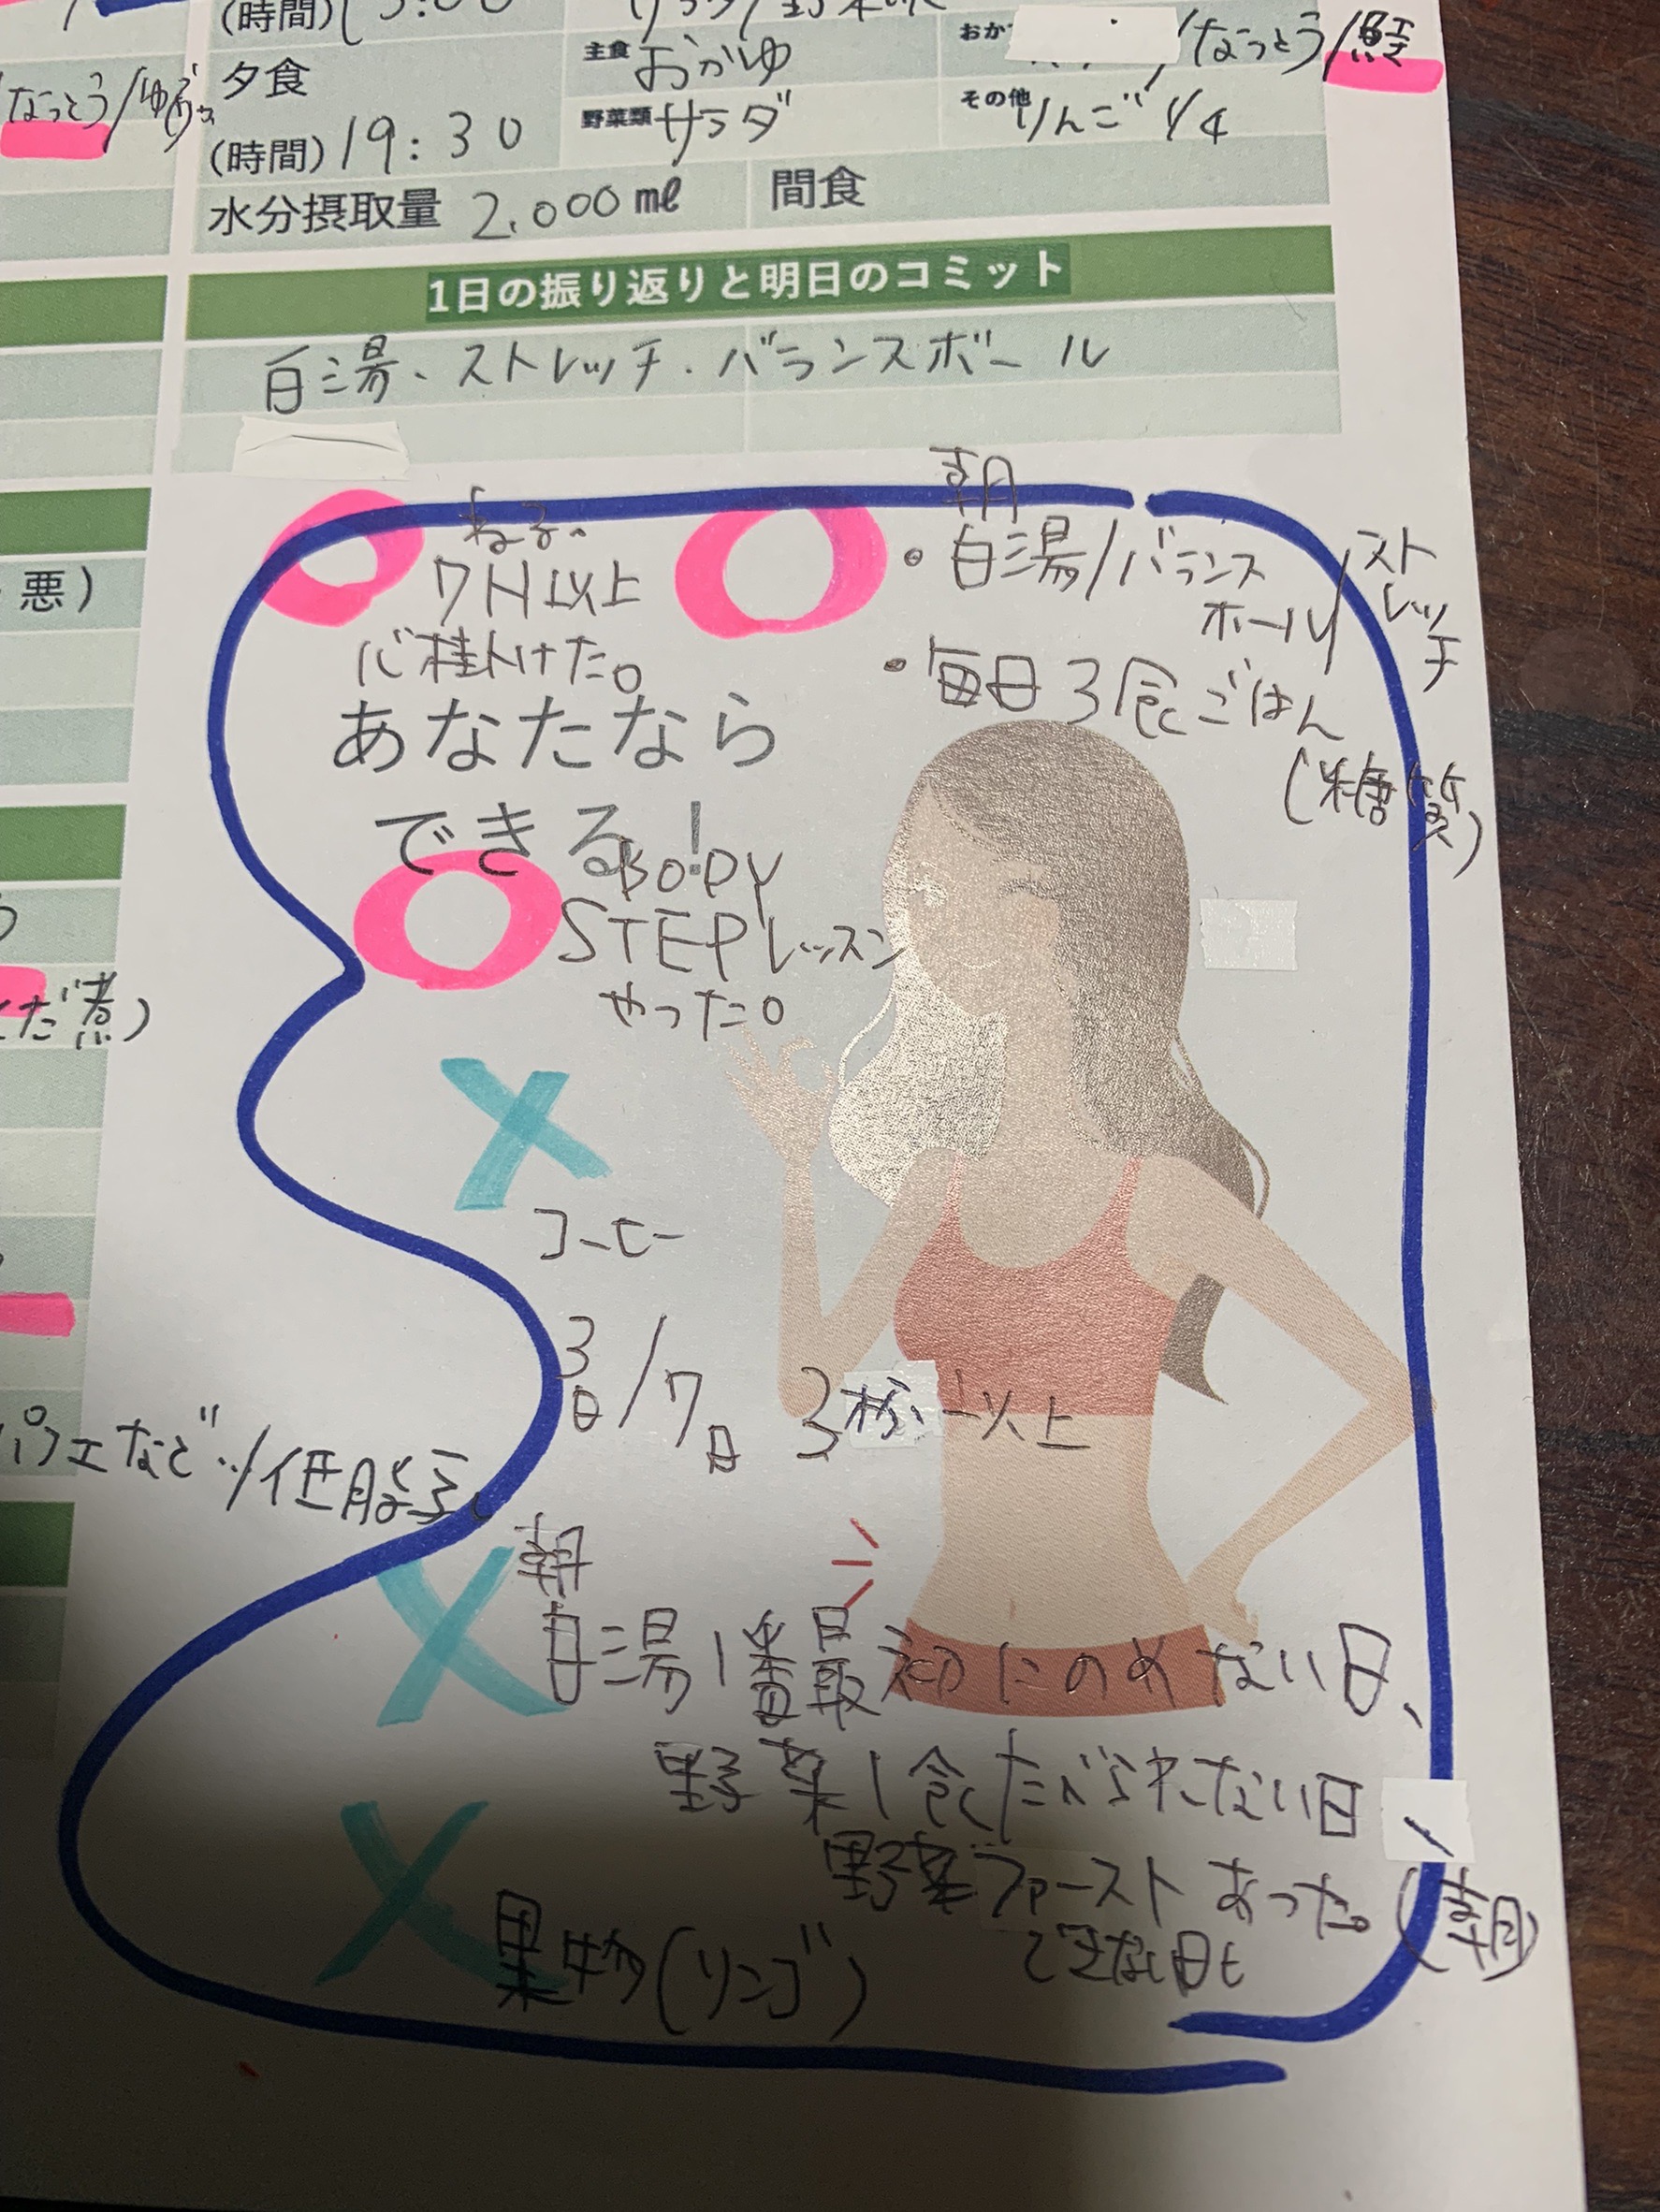 (時間)
夕食
(時間) 19:30
主食 おかゆ
野菜類 サラダ
おか
/なっとう/鮭
その他 りんご 1/4
なっとう/ゆ
水分摂取量 2,000 ㎖
間食
1日の振り返りと明日のコミット
白湯、ストレッチ、バランスボール
悪)
ねる、
7H以上
心掛けた。
朝
・白湯/バランス
ボール/
スト
レッ
チ
・毎日3食ごはん
(糖質)
あなたなら
できる!
BODY
STEPレッスン
やった。
だ煮)
コーヒー
3日/7日 3杯以上
パフェなど/低脂
朝
白湯1番最初にのめない日、
野菜1食たべられない日、
野菜ファースト あった。(朝)
できない日も
果物(リンゴ)